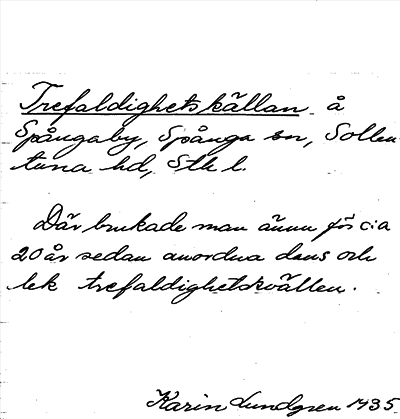 Trefaldighetskällan å
Spångaby, Spånga sn, Sollen-
tuna hd, Sth l.
Där brukade man ännu för c:a
20 år sedan anordna dans och
lek trefaldighetskvällen.
Karin Lundgren 1935